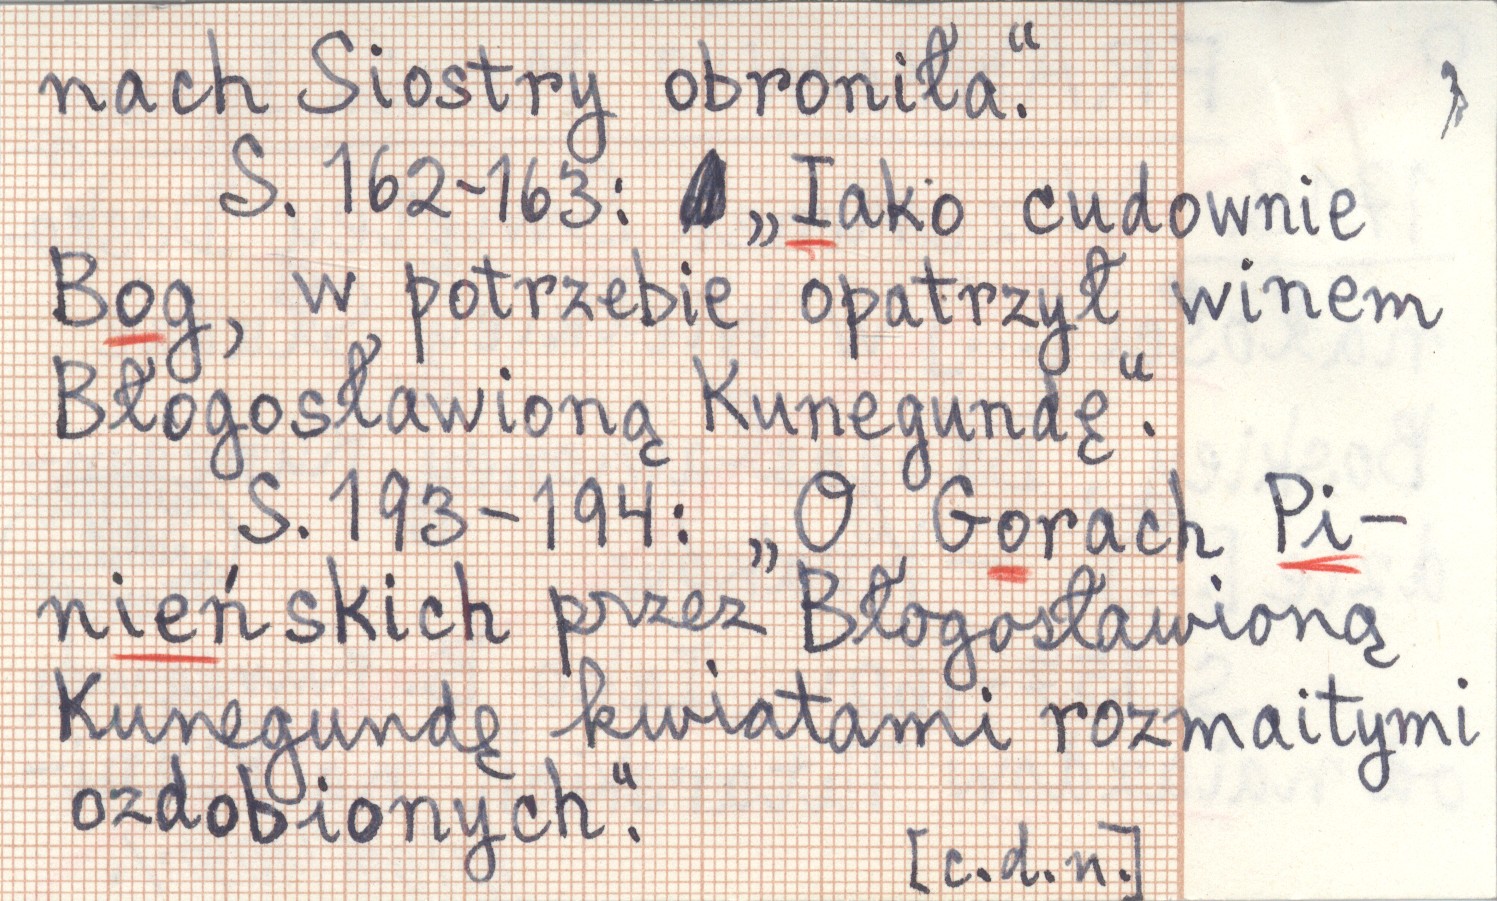 nach Siostry obroniła.“
S. 162-163: „Iako cudownie
Bog, w potrzebie opatrzył winem
Błogosławioną Kunegundę“.
S. 193-194: „O Gorach Pi-
nieńskich przez Błogosławioną
Kunegundę kwiatami rozmaitymi
ozdobionych“.
[c.d.n.]